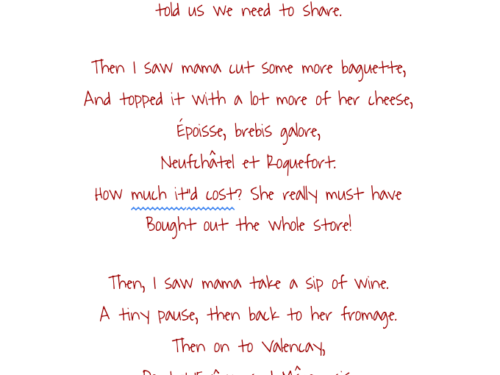 told us we need to share.
Then I saw mama cut some more baguette,
And topped it with a lot more of her cheese,
Époisse, brebis galore,
Neufchâtel et Roquefort.
How much it'd cost? She really must have
Bought out the whole store!
Then, I saw mama take a sip of wine.
A tiny pause, then back to her fromage.
Then on to Valencay,